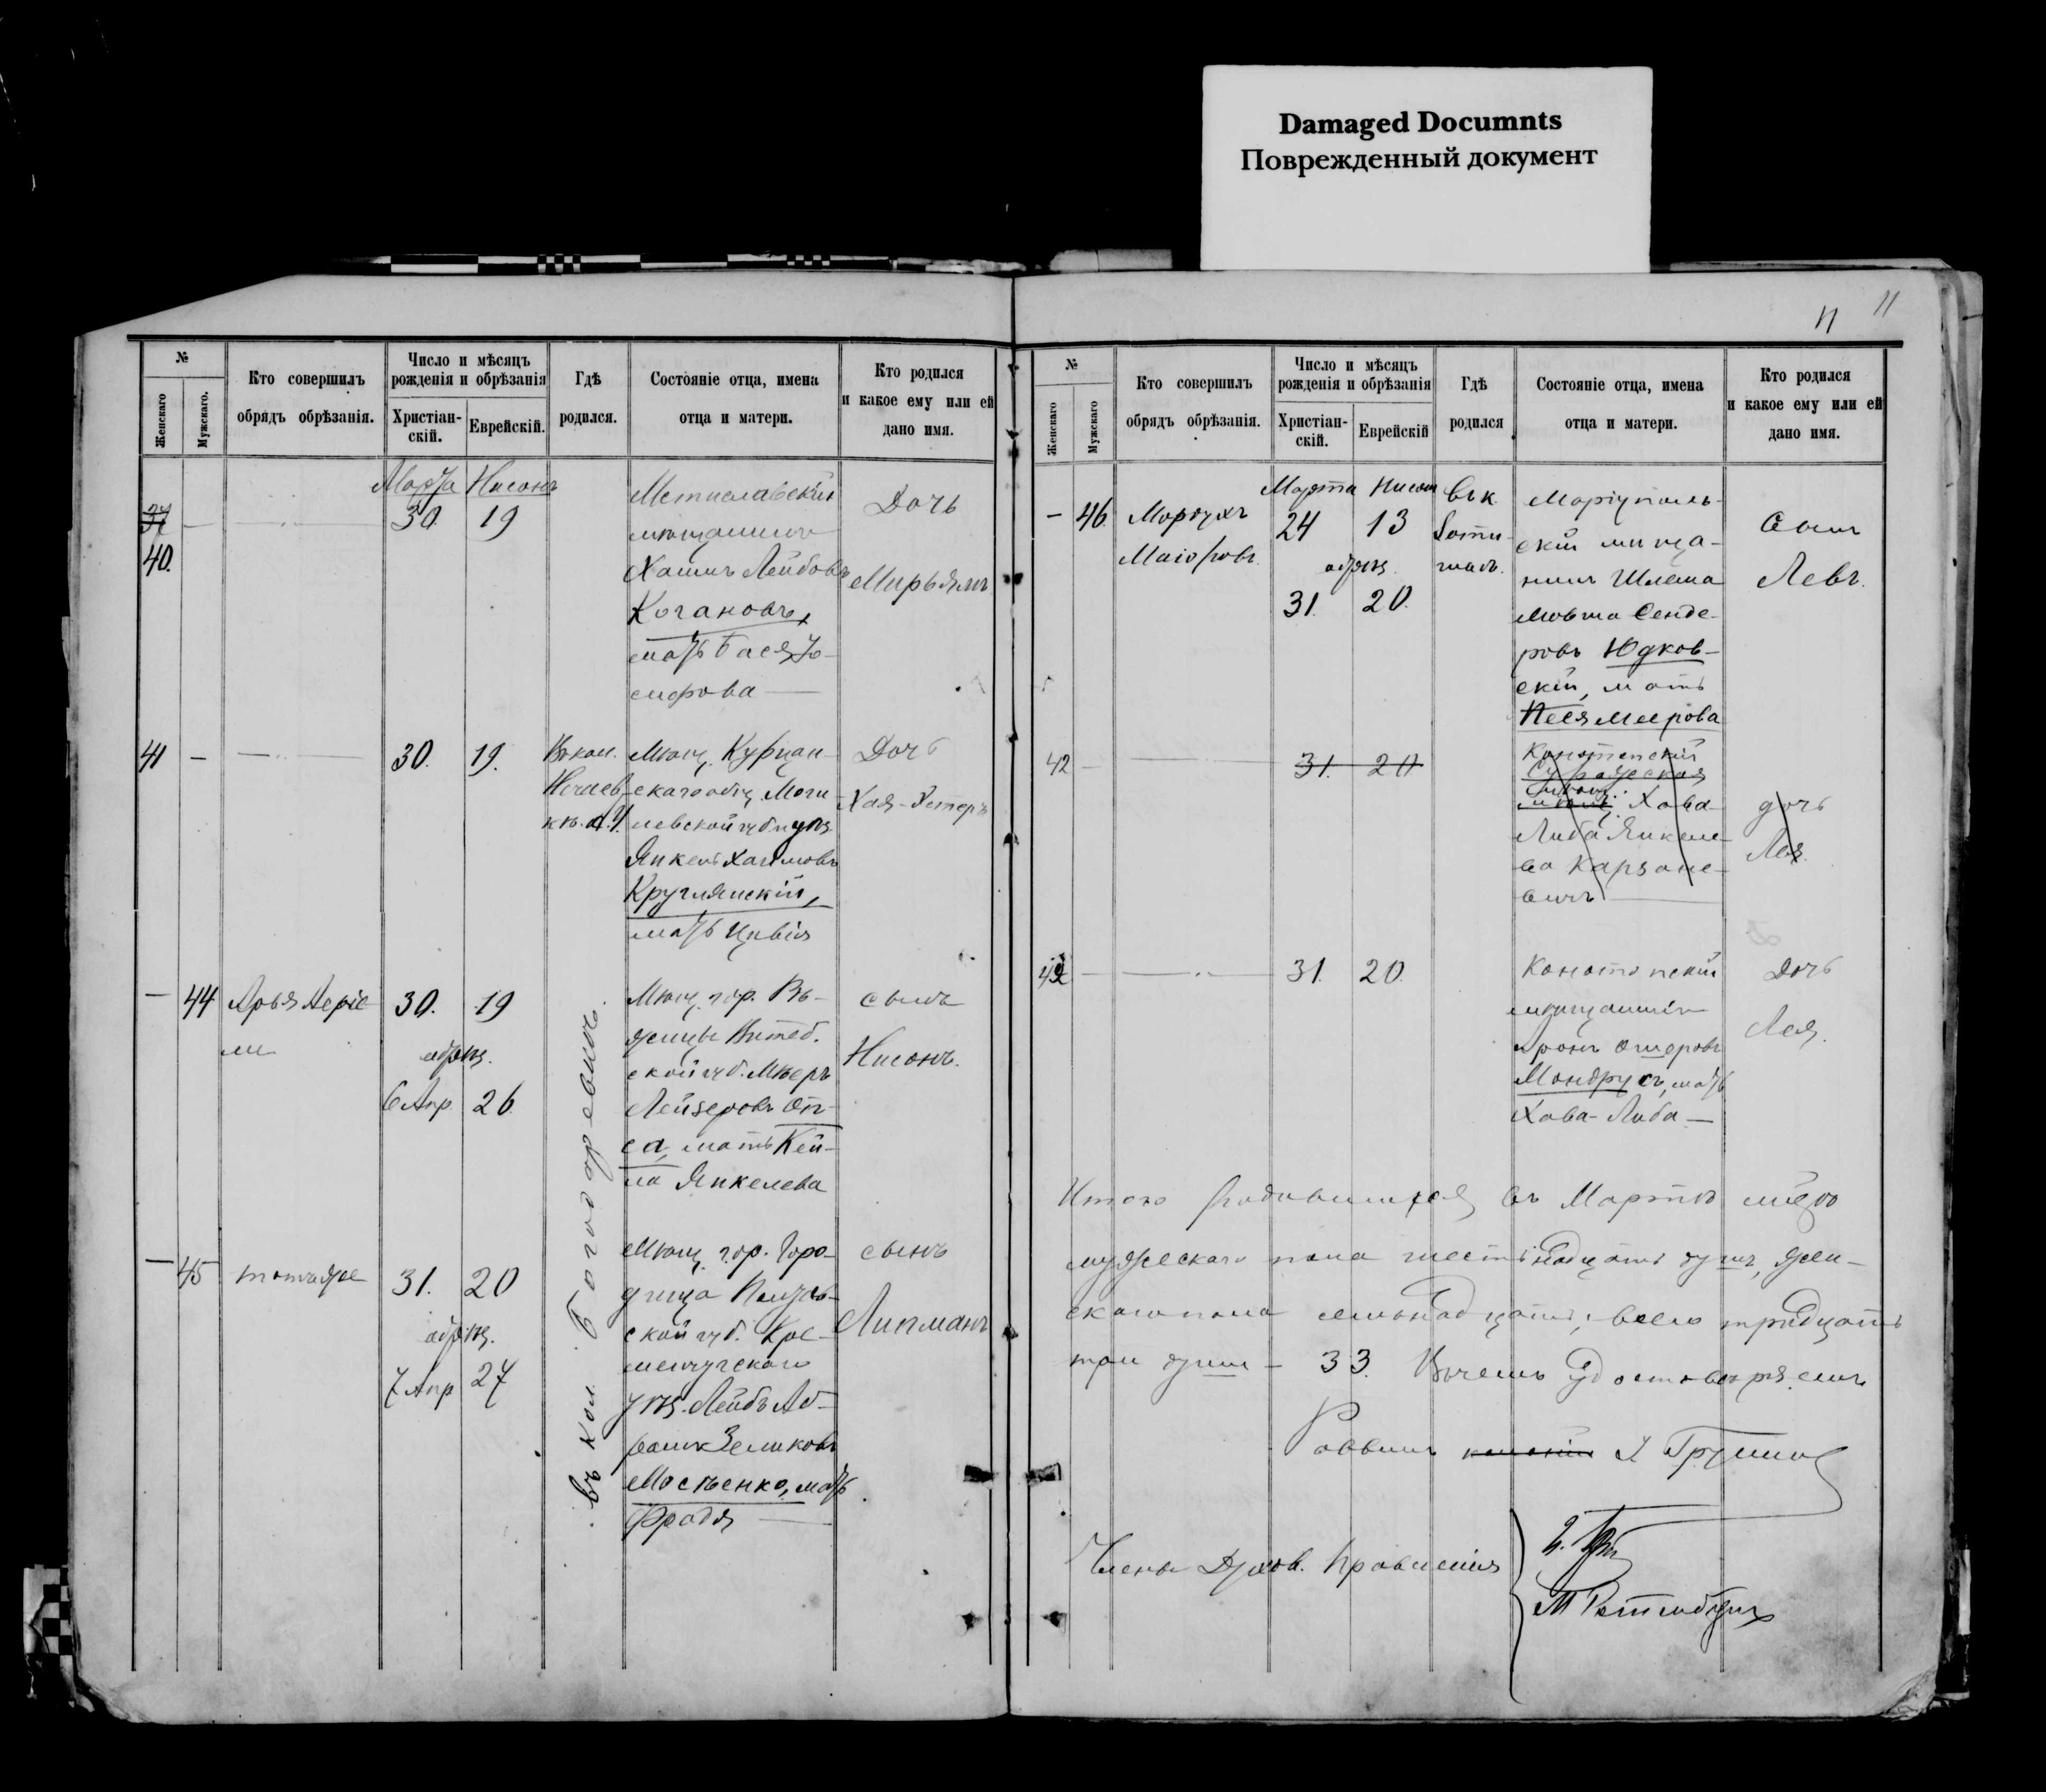 Damaged Documnts
Поврежденный документ
11
11
№
Женскаго
Мужскаго.
Кто совершилъ
обрядъ обрѣзанія.
Число и мѣсяцъ
рожденія и обрѣзанія
Христіан-
скій.
Еврейскій.
Гдѣ
родился.
Состояніе отца, имена
отца и матери.
Кто родился
и какое ему или ей
дано имя.
37
40.
Марта Нисонъ
30. 19
Мстиславскій
мѣщанинъ
Хаимъ Лейбовъ
Когановъ,
мать Бася
Дочь
Мирьямъ
41 —
30. 19.
Въ кол.
Нечаев-
кѣ.
Мѣщ.
скаго общ. Моги-
левской губ.
Янкель Хаимовъ
Круглянскій,
мать Цивія
Дочь
Хая-Эстеръ
— 44
Арья
30. 19
обрѣз.
6 Апр. 26.
Мѣщ. гор. Въ-
Витеб.
ской губ.
Лейзеровъ Оп-
са, мать Кей-
ла Янкелева
сынъ
Нисонъ.
— 45
тотъ же
31. 20
обрѣз.
7 Апр 27
въ кол. Богодаревкѣ.
Мѣщ. гор. Горо-
дища Полтав-
ской губ. Кре-
менчугскаго
уѣз. Лейбъ Аб-
рамъ Зеликовъ
мать
Фрадя
сынъ
Липманъ
№
Женскаго
Мужскаго
Кто совершилъ
обрядъ обрѣзанія.
Число и мѣсяцъ
рожденія и обрѣзанія
Христіан-
скій.
Еврейскій
Гдѣ
родился
Состояніе отца, имена
отца и матери.
Кто родился
и какое ему или ей
дано имя.
— 46
Мордухъ
Маіоровъ.
Марта Нисон
24 13
обрѣз.
31. 20.
Маріуполь-
скій мѣща-
нинъ Шлема
Мовша Сенде-
ровъ Юдков-
скій, мать
Песя Меерова
Сынъ
Левъ.
42 —
31. 20
Конотопскій
Хова-
Либа Янкеле-
ва
дочь
Лея.
42 —
31. 20.
Конотопскій
мѣщанинъ
Аронъ Ошеровъ
Мондрусъ, мать
Хова-Либа —
Дочь
Лея.
Итого родившихся въ Мартѣ мѣсяцѣ
мужескаго пола шестьнадцать душъ, жен-
скаго пола семьнадцать; всего тридцать
три души — 33. Въ чемъ удостовѣряемъ
Раввинъ
Члены Духов. Правленія